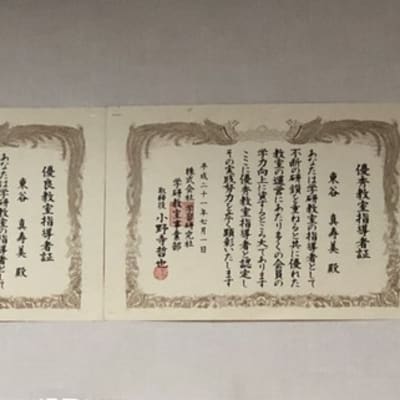 優秀教室指導者証
東谷 真寿美 殿
あなたは学研教室の指導者として
不断の研鑽を重ねると共に優れた
教室の運営にあたり多くの会員の
学力向上に資するところ大であります
ここに優秀教室指導者と認定し
その実践努力を永く顕彰いたします
平成二十一年七月一日
株式会社 学習研究社
学研教室事業部
取締役 小野寺哲也
優良教室指導者証
東谷 真寿美 殿
あなたは学研教室の指導者として